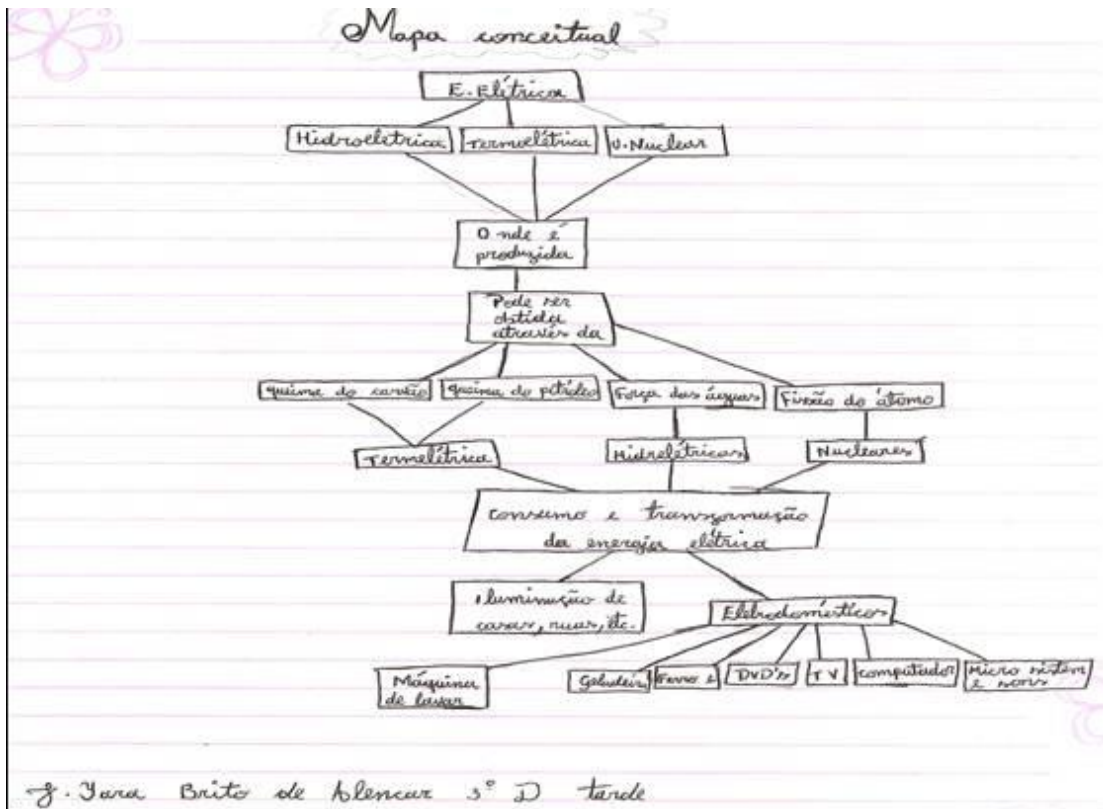 Mapa conceitual
E. Elétrica
Hidroeletrica
Termoelétrica
U. Nuclear
Onde é
produzida
Pode ser
obtida
através da
queima do carvão
queima do petróleo
Força das águas
Fissão do átomo
Termelétrica
Hidrelétricas
Nucleares
consumo e transformação
da energia elétrica
iluminação de
casas, ruas, etc.
Eletrodomésticos
Máquina
de lavar
Geladeira
Ferro e
DVD's
TV
computador
Micro sistem
e sons
Yara Brito de Alencar D tarde